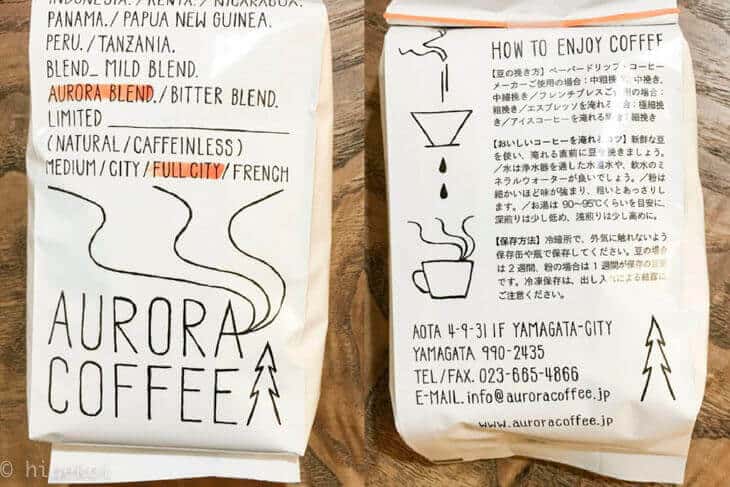 INDONESIA./KENYA./NICARAGUA.
PANAMA./PAPUA NEW GUINEA.
PERU./TANZANIA.
BLEND_ MILD BLEND.
AURORA BLEND./BITTER BLEND.
LIMITED
(NATURAL/CAFFEINLESS)
MEDIUM/CITY/FULL CITY/FRENCH
AURORA
COFFEE
HOW TO ENJOY COFFEE
【豆の挽き方】ペーパードリップ・コーヒー
メーカーご使用の場合：中粗挽き、中挽き、
中細挽き／フレンチプレスご使用の場合：
粗挽き／エスプレッソを淹れる場合：極細挽
き／アイスコーヒーを淹れる場合：細挽き
【おいしいコーヒーを淹れるコツ】新鮮な豆
を使い、淹れる直前に豆を挽きましょう。
／水は浄水器を通した水道水や、軟水のミ
ネラルウォーターが良いでしょう。／粉は
細かいほど味が強まり、粗いとあっさりし
ます。／お湯は 90〜95℃くらいを目安に、
深煎りは少し低め、浅煎りは少し高めに。
【保存方法】冷暗所で、外気に触れないよう
保存缶や瓶で保存してください。豆の場合
は2週間、粉の場合は1週間が保存の目安
です。冷凍保存は、出し入れによる結露に
ご注意ください。
AOTA 4-9-31 1F YAMAGATA-CITY
YAMAGATA 990-2435
TEL/FAX. 023-665-4866
E-MAIL. info@auroracoffee.jp
www.auroracoffee.jp